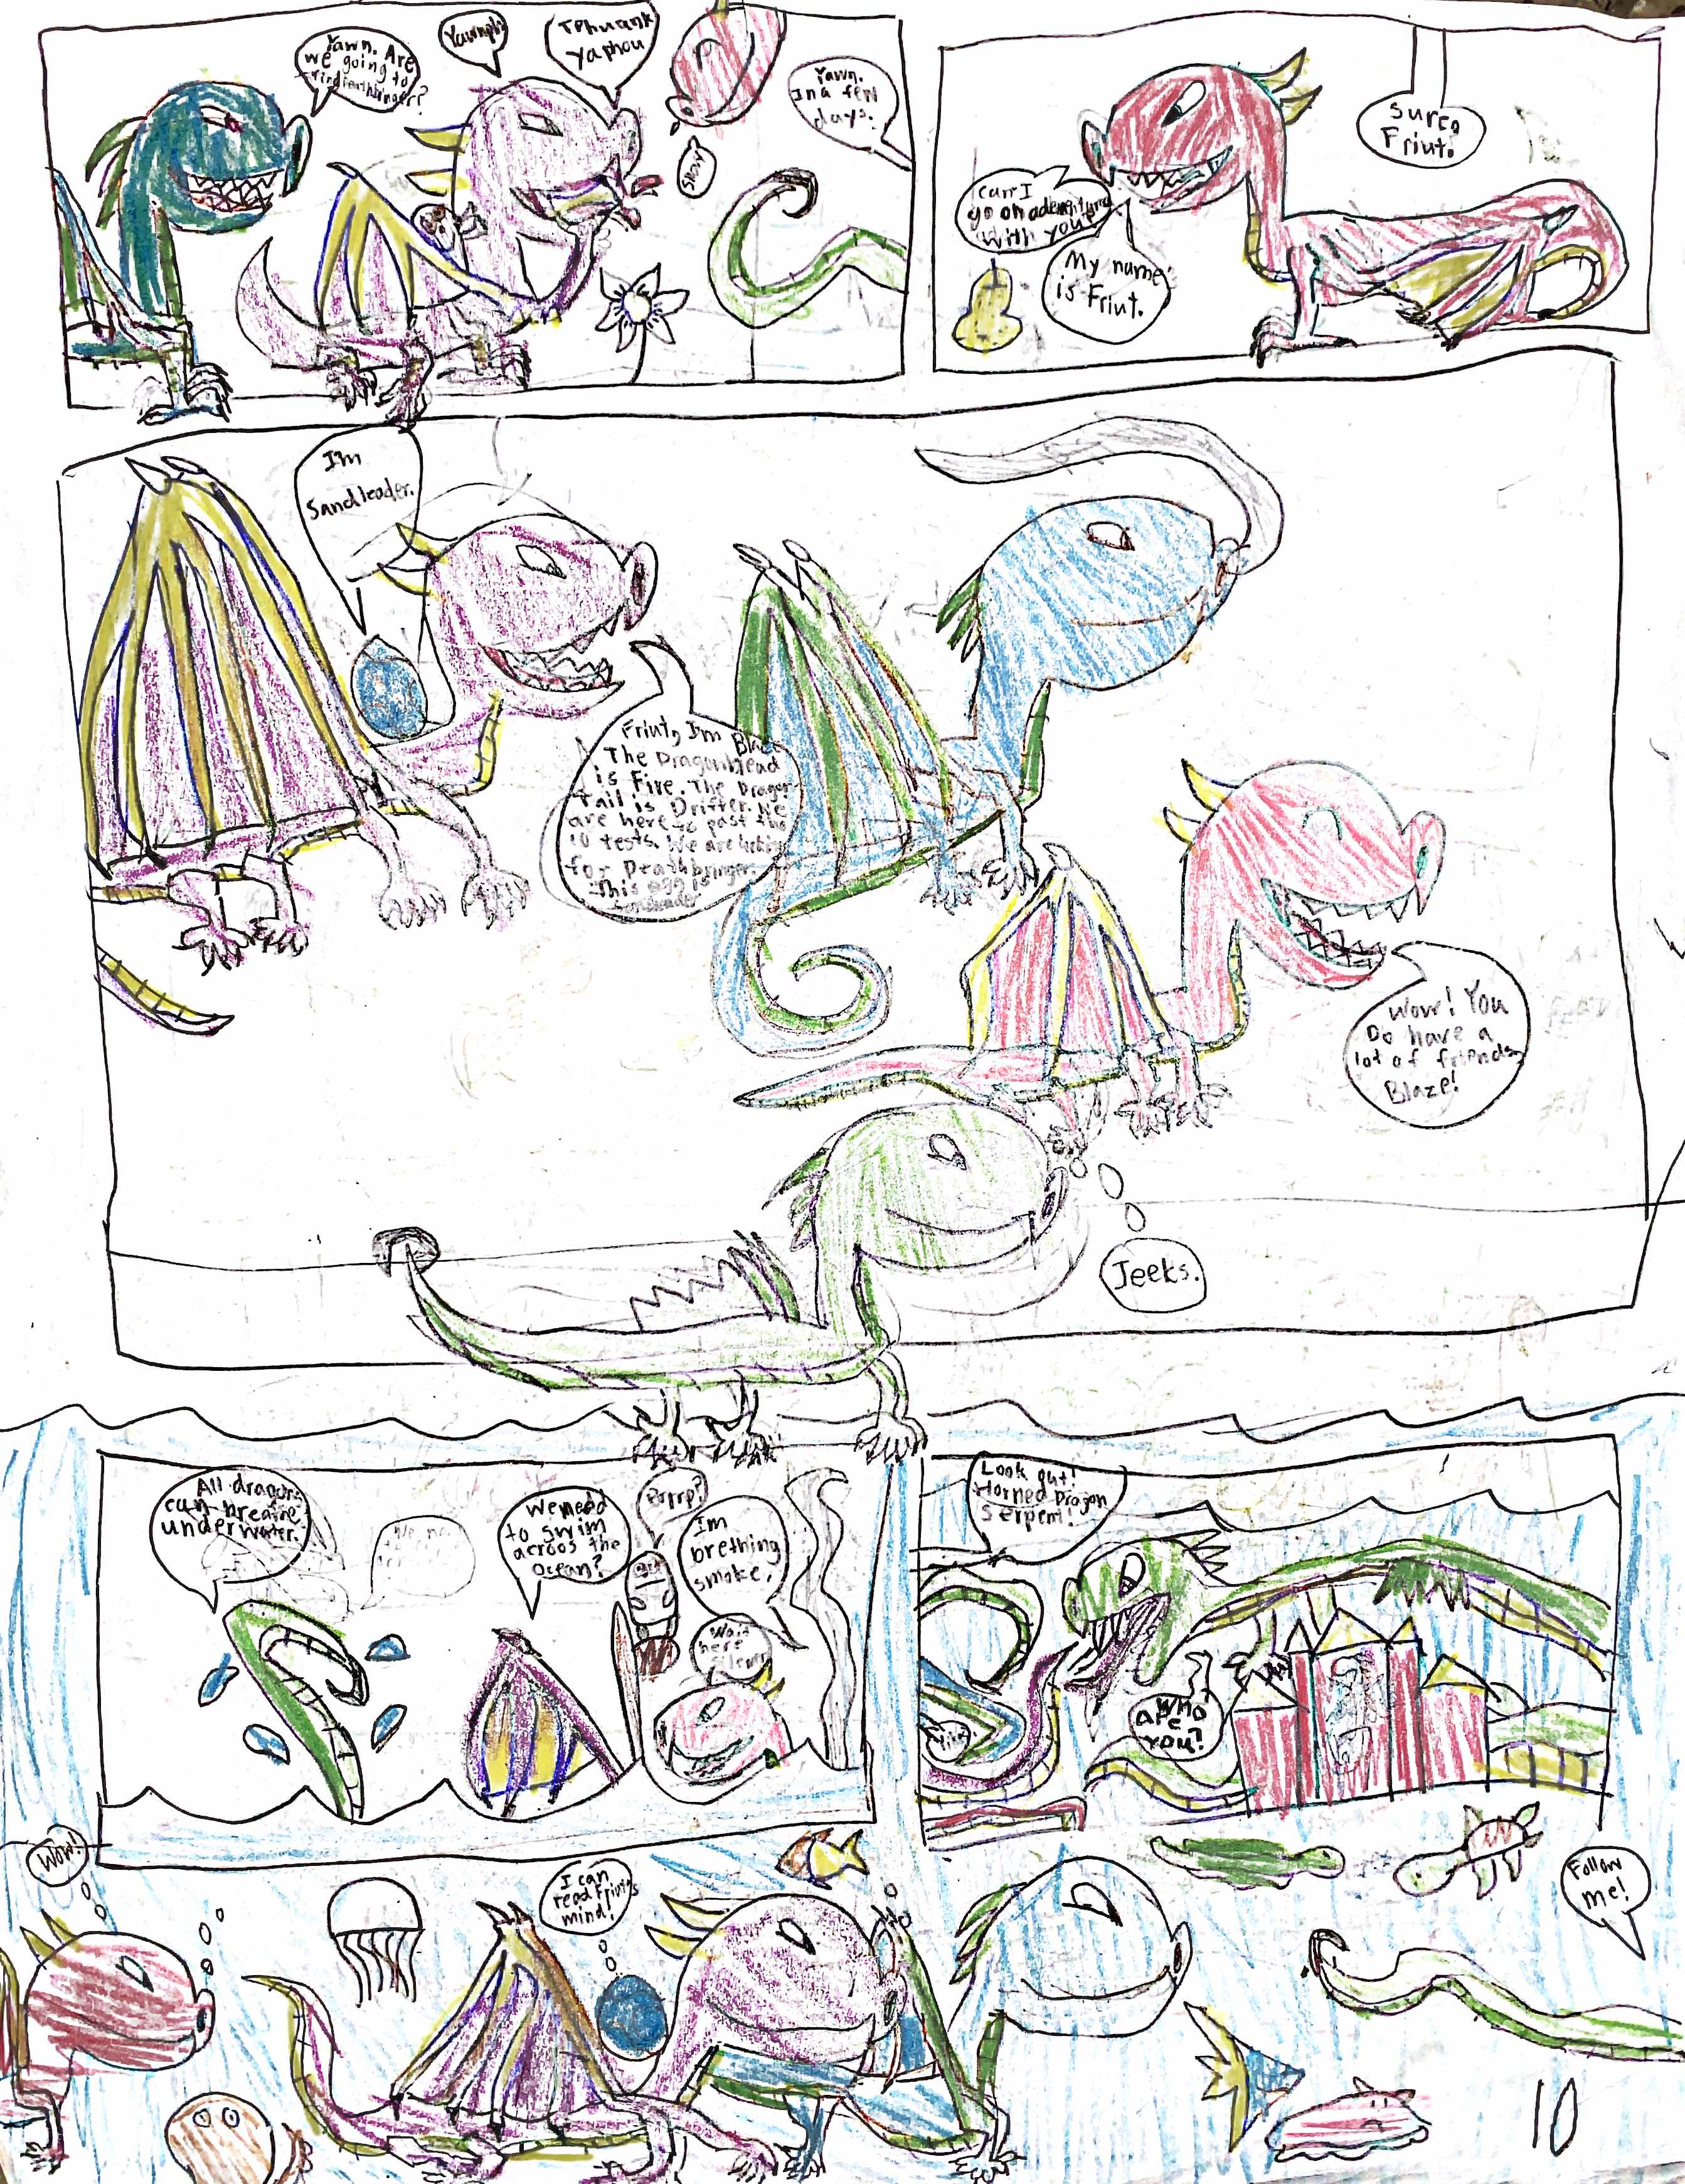 Yawn. Are
we going to
find Deathbringer?
Yawnph.
Tphuank
Yaphou
Shor
Yawn.
In a few
days.
can I
go on adventure
with you?
My name
is Friut.
Sure,
Friut.
I'm
Sandleader.
Friut, I'm Blaze
The Dragonhead
is Fire. The Dragon
Tail is Drifter. We
are here to past the
10 tests. We are lucking
for Deathbringer.
This egg is
Sandleader
Wow! You
Do have a
lot of friends,
Blaze!
Jeeks.
All dragons
can breathe
underwater.
We need
to swim
acroos the
Ocean?
Brrrp?
Im
brething
smoke.
Wait
here
Look out!
Horned Dragon
Serpent!
Who
are
you?
Wow!
I can
read Friut's
mind!
Follow
me!
10